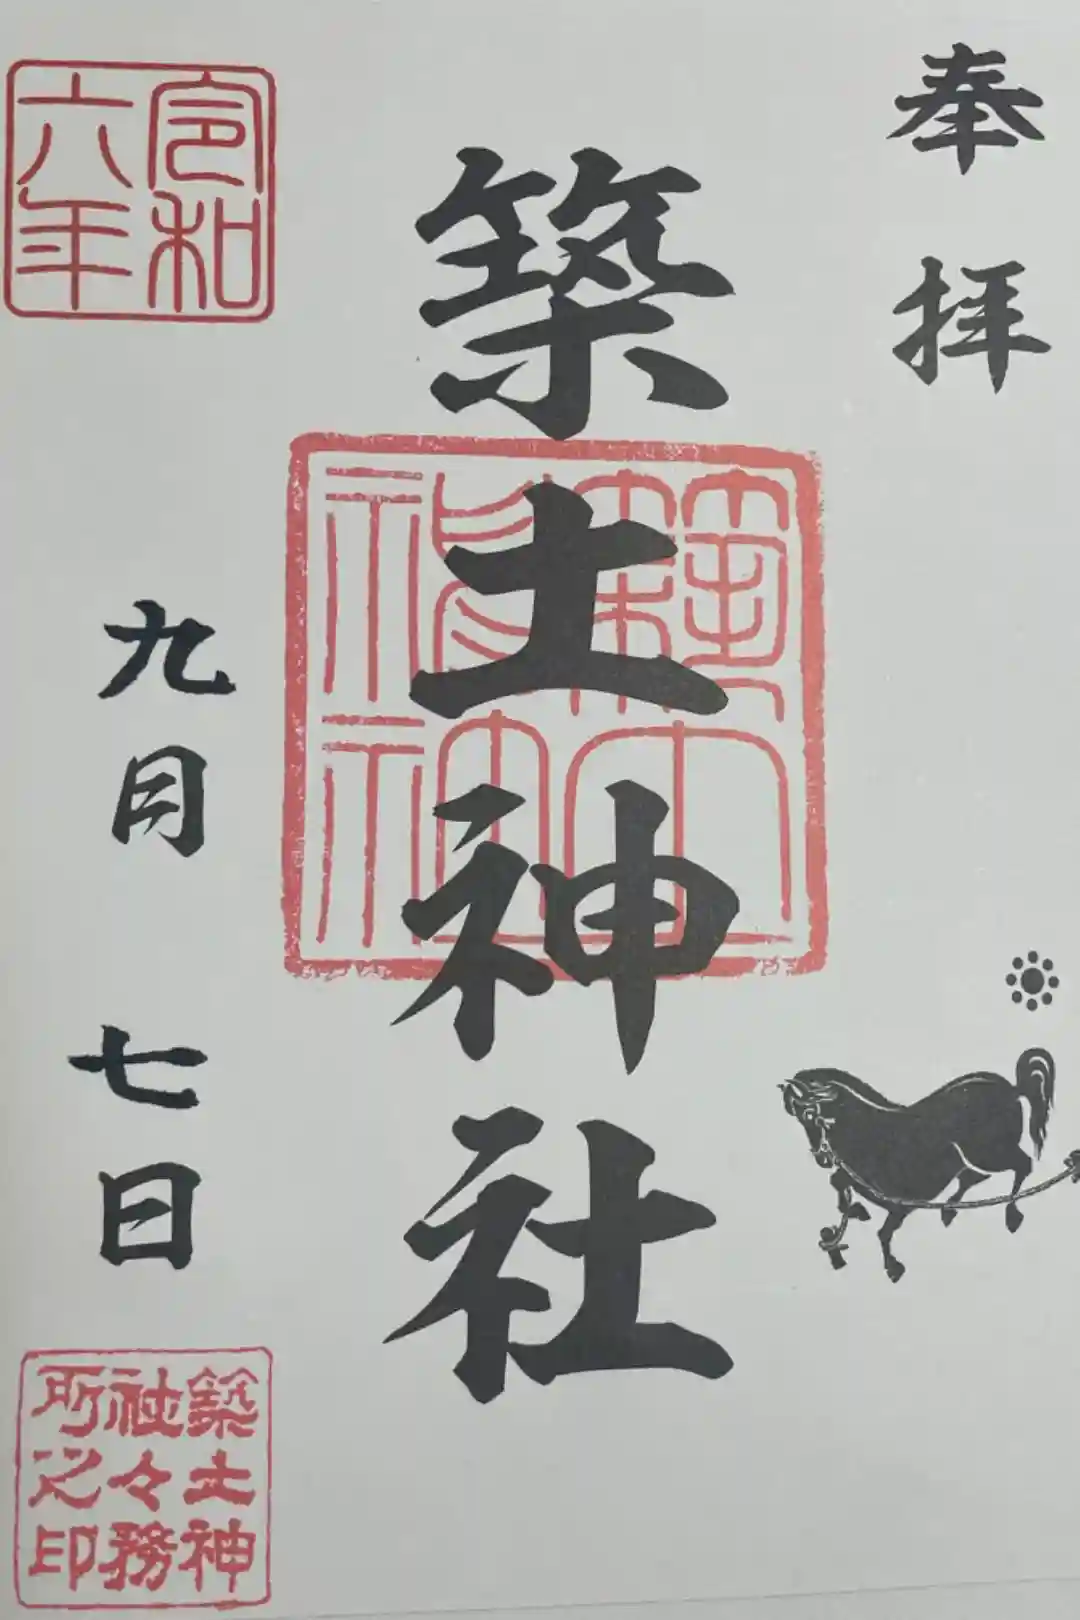 奉拝
築土神社
築土神社
令和六年
九月七日
築土神社々務所之印